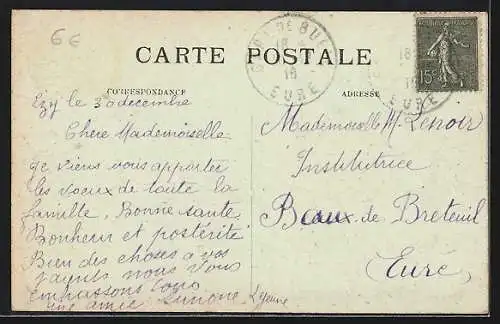 6€
CARTE POSTALE
CORRESPONDANCE
ADRESSE
EURE
15c
EURE
Ezy le 30 decembre
Chere Mademoiselle
Je viens vous apporter
les voeux de toute la
famille. Bonne sante
Bonheur et postérité
Bien des choses a vos
parents nous vous
embrassons tous
une amie Simone Lejeune
Mademoiselle M. Lenoir
Institutrice
Baux de Breteuil
Eure